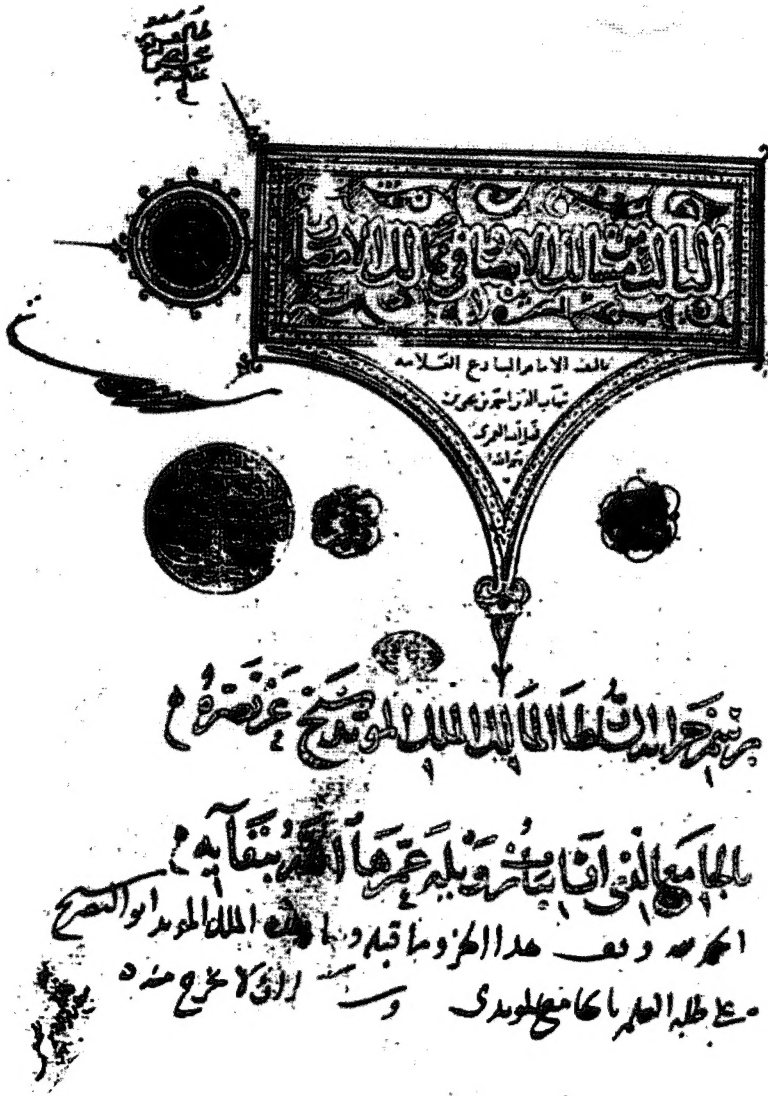 الثالث من مسالك الابصار في ممالك الامصار
تاليف الامام البارع العلامه
شهاب الدين احمد بن يحيى بن
فضل الله العمري
رحمه الله
برسم خزانة السلطان المالك الملك المويد شيخ عز نصره
بالجامع الذي انشاه بباب زويلة عمرها الله ببقايه
الحمد لله وقف هذا الجزو وما قبله وما بعده الملك المويد ابو النصر شيخ
على طلبه العلم بالجامع المويدى وشرط ان لا يخرج منه